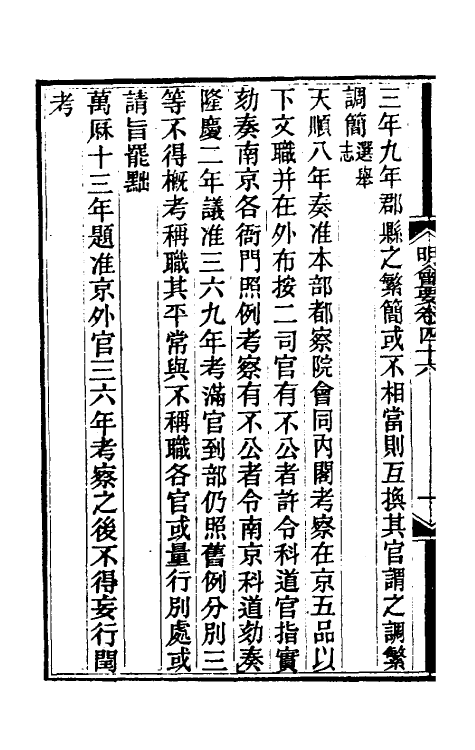 明會要卷四十六
三年九年郡縣之繁簡或不相當則互換其官謂之調繁
調簡選舉志
天順八年奏准本部都察院會同內閣考察在京五品以
下文職并在外布按二司官有不公者許令科道官指實
劾奏南京各衙門照例考察有不公者令南京科道劾奏
隆慶二年議准三六九年考滿官到部仍照舊例分別三
等不得概考稱職其平常與不稱職各官或量行別處或
請旨罷黜
萬厤十三年題准京外官三六年考察之後不得妄行閏
考